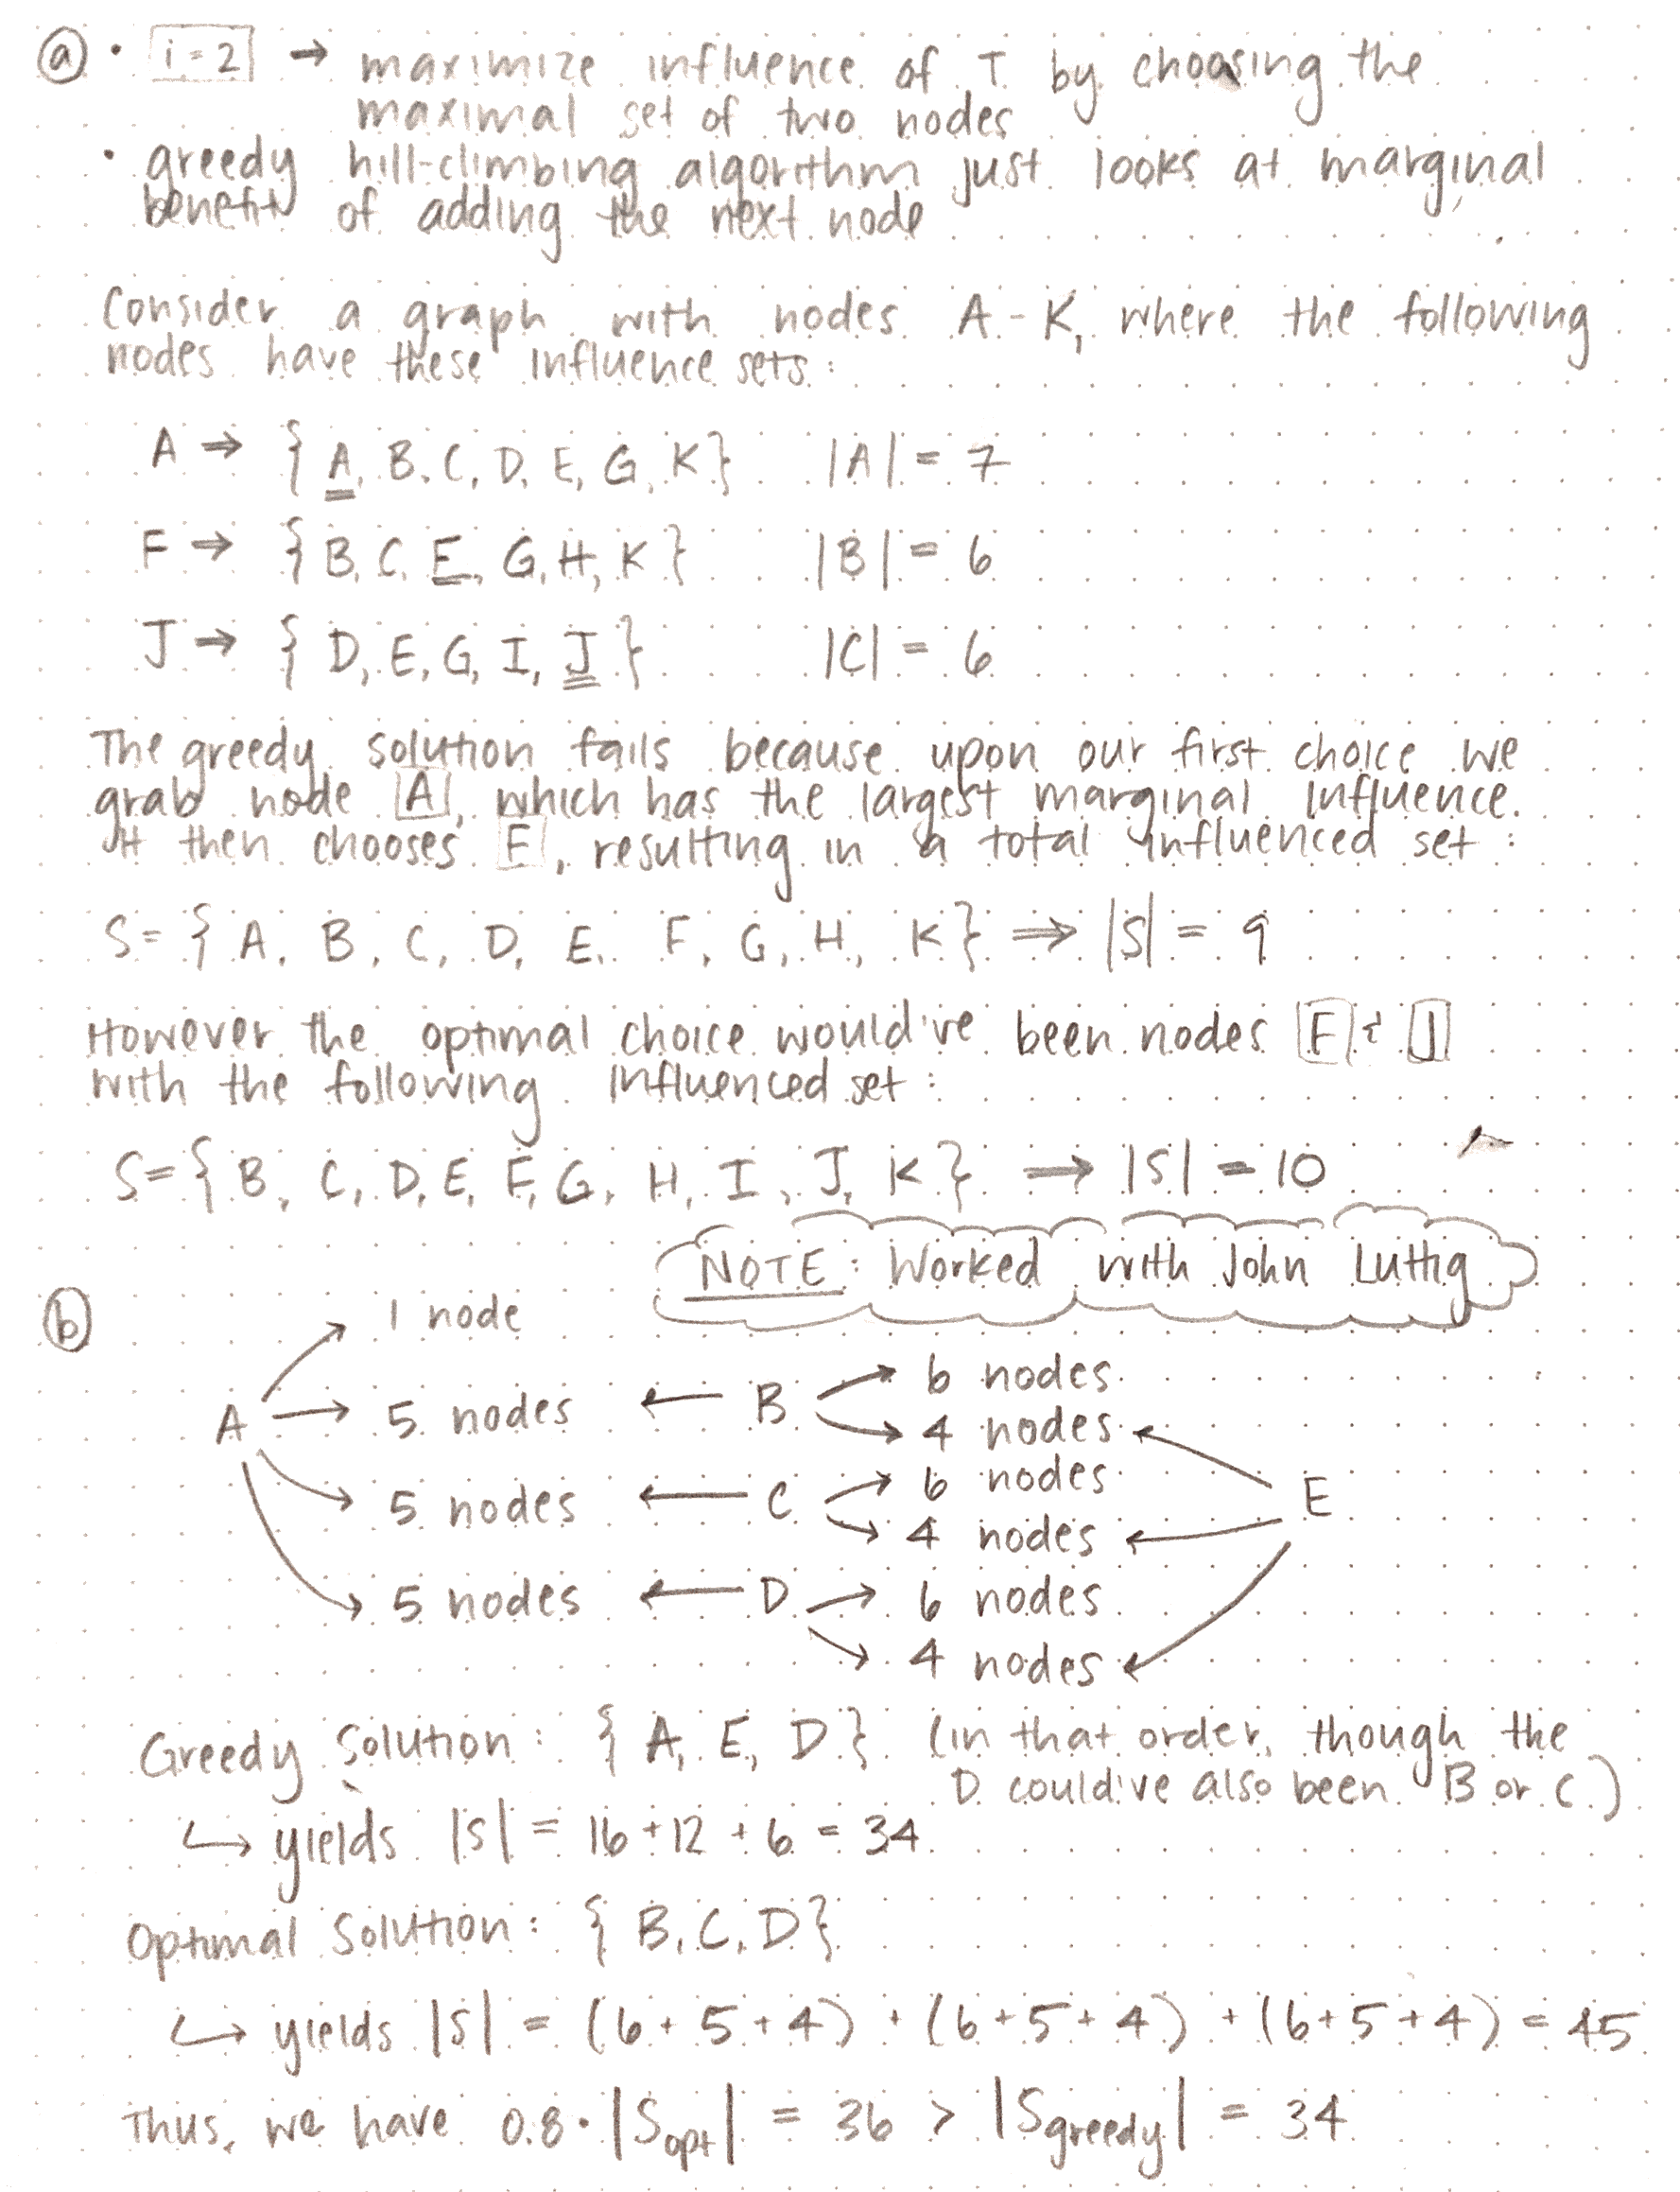 ⓐ • i=2 → maximize influence of T by choosing the
maximal set of two nodes
• greedy hill-climbing algorithm just looks at marginal
benefit of adding the next node
Consider a graph with nodes A-K, where the following
nodes have these influence sets:
A → { A, B, C, D, E, G, K } |A| = 7
F → { B, C, E, G, H, K } |B| = 6
J → { D, E, G, I, J } |C| = 6
The greedy solution fails because upon our first choice we
grab node A, which has the largest marginal influence.
It then chooses F, resulting in a total influenced set:
S = { A, B, C, D, E, F, G, H, K } ⟹ |S| = 9
However the optimal choice would've been nodes F & J
with the following influenced set:
S = { B, C, D, E, F, G, H, I, J, K } → |S| = 10
NOTE: Worked with John Luttig
ⓑ
1 node
6 nodes
A → 5 nodes ← B
4 nodes
6 nodes
5 nodes ← C
E
4 nodes
5 nodes ← D → 6 nodes
4 nodes
Greedy Solution: { A, E, D } (in that order, though the
D could've also been B or C.)
↳ yields |S| = 16 + 12 + 6 = 34
Optimal Solution: { B, C, D }
↳ yields |S| = (6 + 5 + 4) + (6 + 5 + 4) + (6 + 5 + 4) = 45
Thus, we have 0.8 · |Sopt| = 36 > |Sgreedy| = 34